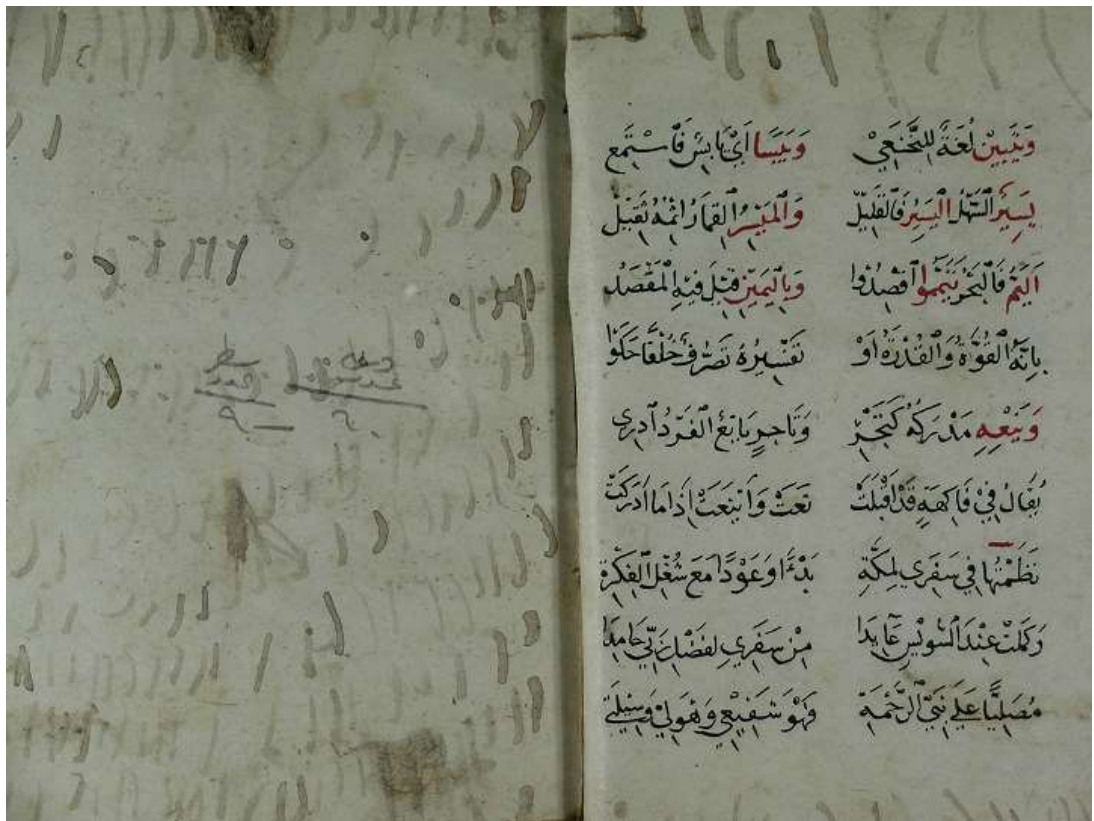 وَيَيْبَيِنْ لُغَةٌ لِلنَّخَعِيْ وَيَبَسًا اَيْ يَابِسٌ فَاسْتَمِعِ
يَسِيرٌ السَّهْلُ الْيَسِيرُ فَالْقَلِيلْ وَالْمَيْسِرُ القِمَارُ اثْمُهُ ثَقِيلْ
اَلْيَمُّ فَالْبَحْرُ تَيَمَّمُوا اقْصِدُوا وَبِالْيَمِينِ قِيْلَ فِيْهِ الْمَقْصَدُ
بِاَنَّهُ الْقُوَّةُ وَالْقُدْرَةُ اَوْ تَفْسِيرُهُ تَصَرُّفٌ خُلْفًا حَكَوْا
وَيَنْعِهِ مَدْرَكِهُ كَتَجْرِ وَتَاجِرٍ يَانِعُ الْفَرْدُ ادْرِي
يُقَالُ فِيْ فَاكِهَةٍ قَدْ اَقْبَلَتْ نَعَتْ وَاَيْنَعَتْ اِذَا مَا اَدْرَكَتْ
نَظَمْتُهَا فِي سَفَرِي لِمَكَّةِ بَدْءًا وَعَوْدًا مَعَ شُغْلِ الْفِكْرَةِ
وَكَمَلَتْ عِنْدَ السُّوَيْسِ عَايِدَا مِنْ سَفَرِي لِفَضْلِ رَبِّي حَامِدَا
مُصَلِيًّا عَلَى نَبِيِّ الرَّحْمَةِ فَهْوَ شَفِيْعِي وَهْوَ لِيْ وَسِيْلَتِي